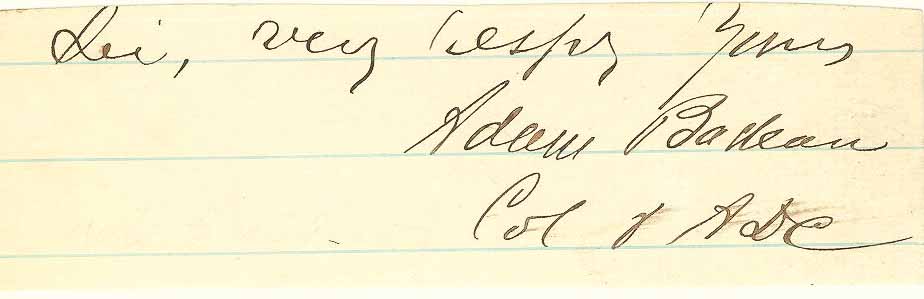 Sir, very respy Yours
Adam Badeau
Col & ADC